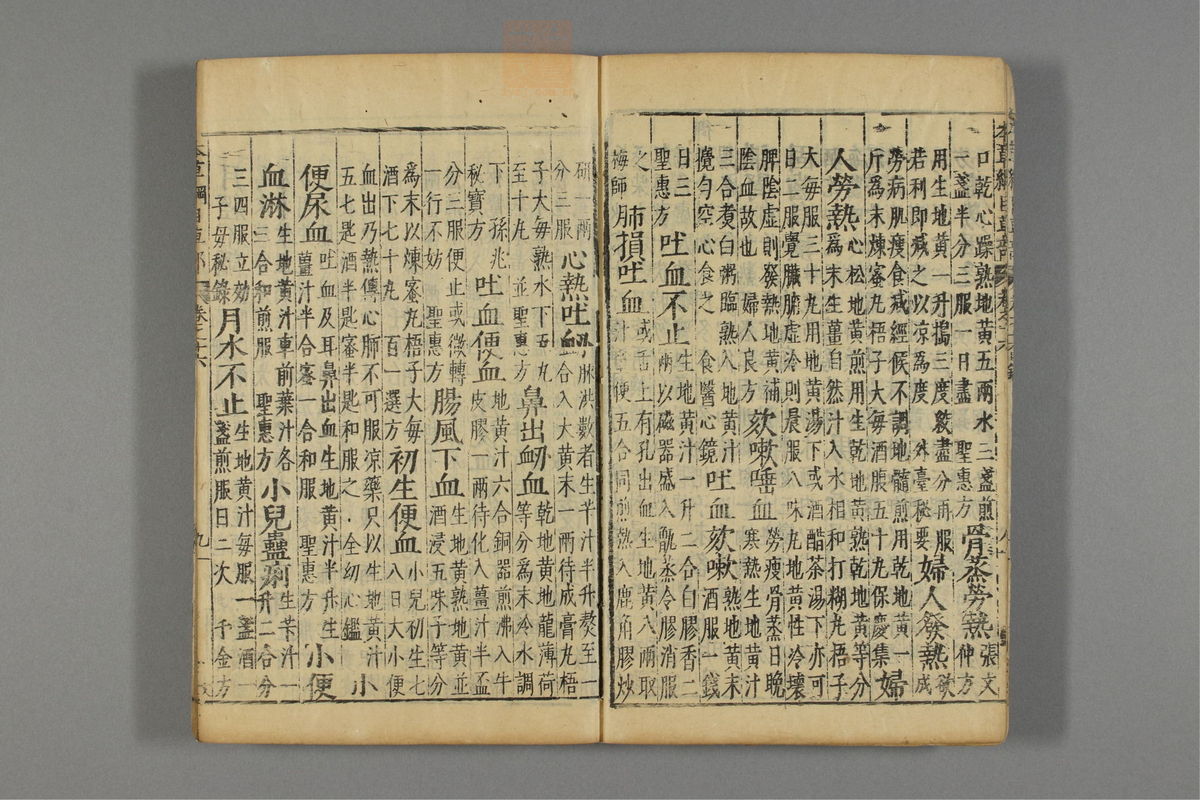 口乾心躁熟地黄五兩水三盞煎
一盞半分三服一日盡 聖惠方
骨蒸勞熱
張文
仲方
用生地黄一升搗三度絞盡分再服
若利即減之以凉為度 外臺秘要
婦人發熱
欲
成
勞病肌瘦食減經候不調地髓煎用乾地黄一
斤為末煉蜜丸梧子大每酒服五十丸保慶集
婦
人勞熱
心松地黄煎用生乾地黄熟乾地黄等分
為末生薑自然汁入水相和打糊丸梧子
大每服三十丸用地黄湯下或酒醋茶湯下亦可
日二服覺臟腑虚冷則晨服八味丸地黄性冷壞
脾陰虚則發熱地黄補
陰血故也 婦人良方
欬嗽唾血
勞瘦骨蒸日晚
寒熱生地黄汁
三合煑白粥臨熟入地黄汁
攪勻空心食之 食醫心鏡
吐血欬嗽
熟地黄末
酒服一錢
日三
聖惠方
吐血不止
生地黄汁一升二合白膠香二
兩以磁器盛入甑蒸令膠消服
之
梅師
肺損吐血
或舌上有孔出血生地黄八兩取
汁童便五合同煎熱入鹿角膠炒
研一兩
分三服
心熱吐衄
脉洪數者生苄汁半升熬至一
合入大黄末一兩待成膏丸梧
子大每熟水下五丸
至十丸 並聖惠方
鼻出衄血
乾地黄地龍薄荷
等分為末冷水調
下 孫兆
秘寶方
吐血便血
地黄汁六合銅器煎沸入牛
皮膠一兩待化入薑汁半盃
分三服便止或微轉
一行不妨 聖惠方
腸風下血
生地黄熟地黄並
酒浸五味子等分
為末以煉蜜丸梧子大每
酒下七十丸 百一選方
初生便血
小兒初生七
八日大小便
血出乃熱傳心肺不可服凉藥只以生地黄汁
五七匙酒半匙蜜半匙和服之 全幼心鑑
小
便尿血
吐血及耳鼻出血生地黄汁半升生
薑汁半合蜜一合和服 聖惠方
小便
血淋
生地黄汁車前葉汁各
三合和煎服 聖惠方
小兒蠱痢
生苄汁一
升二合分
三四服立効
子母秘錄
月水不止
生地黄汁每服一盞酒
一盞煎服日二次 千金方